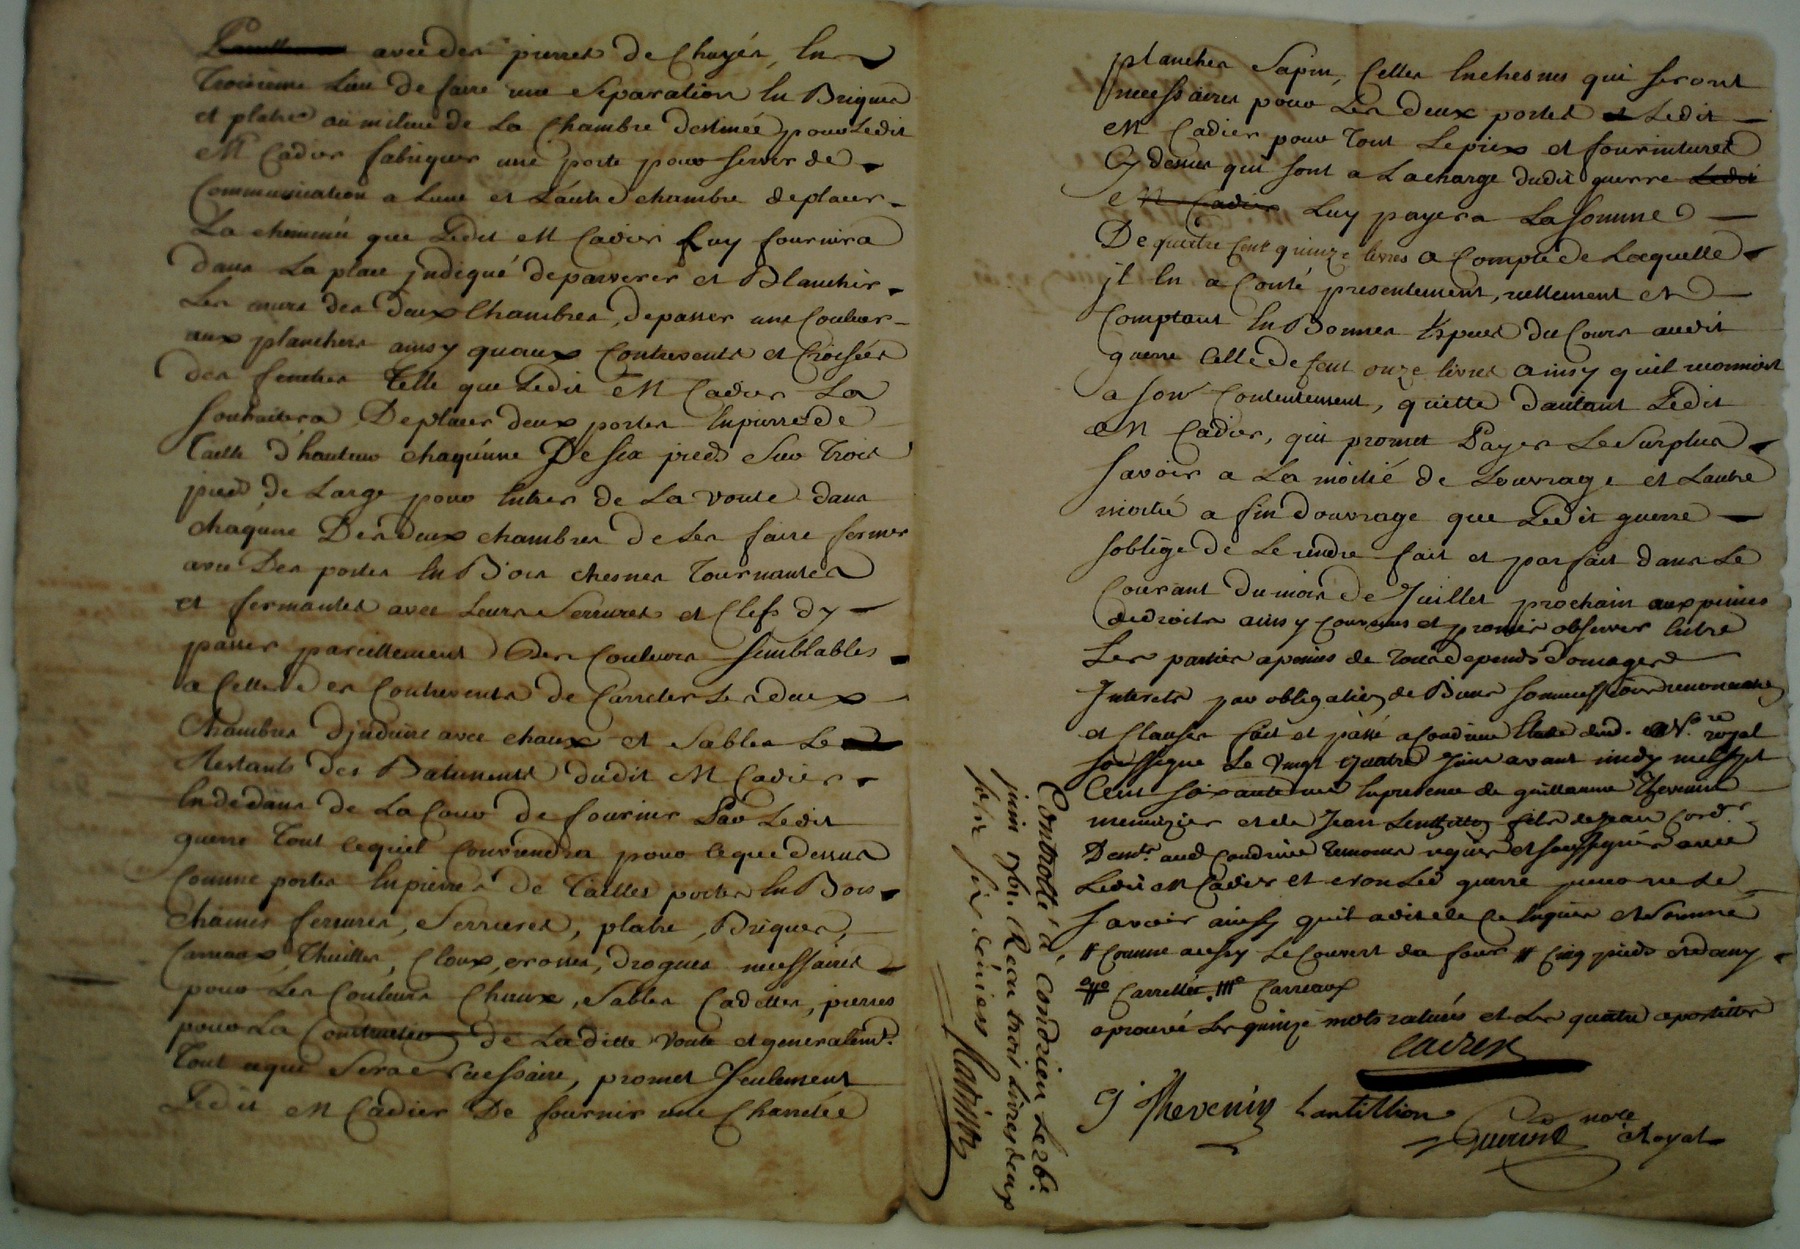 avec des pierres de Chayés, En
Troisieme Lieu de faire une Separation En Briques
et platre au milieu de La Chambre destinée pour Ledit
Mr Cadier fabriquer une porte pour servir de
Communication a Lune et Lautre chambre de placer
La cheminée que Ledit Mr Cadier Luy fournira
dans La place jndiqué de parverer et Blanchir
Les murs des deux Chambres, de passer une Couleur
aux planchers ainsy quaux Contrevents et Croisées
des fenetres Telle que Ledit Mr Cadier La
souhaitera De placer deux portes En pierre de
Taille d'hauteur chaqu'unne De six pieds sur Trois
pied de Large pour Entrer de La voute dans
chaqune Des deux chambres de Les faire fermer
avec Des portes En Bois chesnes Tournantes
et fermantes avec Leurs Serrures et Clefs dy
passer pareillement Des Couleurs semblables
a Celles des Contrevents de Carreler Les deux
Chambres Djnduire avec chaux et Sables Le
Restants des Batiments dudit Mr Cadier
En dedans de La Cour de fournir Par Ledit
guerre Tout ce quil Conviendra pour ce que dessus
Comme portes En pierres de Tailles portes En Bois
chaines ferrures, Serrures, platre, Briques,
Carreaux, Thuilles, Cloux, crosses, drogues necessaires
pour Les Couleurs Chaux, Sables Cadettes, pierres
pour La Construction de La ditte voute et generalemt.
Tout ce que Sera necessaire, promet seulement
Ledit Mr Cadier De fournir une Charretée
planches Sapin, Celles En chesnes qui seront
necessaires pour Les deux portes Ledit
Mr Cadier pour Tout Le prix et fournitures
Cy dessus qui sont a La charge dudit guerre Ledit
Mr Cadier Luy payera La somme
De quatre Cent quinze livres a Compte de Laquelle
jl En a Conté presentement, réellement et
Comptant En Bonnes Espèces du Cours audit
guerre Celle de Cent onze livres ainsy quil reconnoit
a son Contentement, quitte d'autant Ledit
Mr Cadier, qui promet Payer Le Surplus
savoir a La moitié de Louvrage et Lautre
moitié a fin douvrage que Ledit guerre
soblige de Le rendre fait et parfait dans Le
Courant Du mois De Juillet prochain aux peines
de droits ainsy convenus et promis observer Entre
Les parties a peines de Tous depends domages
Interets par obligation de Biens soumissions renonciations
et Clauses fait et passé a Condrieu Etude dud. Nore. royal
soussigné Le vingt quatre Juin avant midy mil sept
Cent soixante un En presence de guillaume Thevenin
menuizier et de Jean Lentillon fils de Jean Cordr.
Demts. aud Condrieu Temoins requis et soussignés avec
Ledit Mr Cadier et non Led guerre pour ne Le
savoir ainsy quil a dit de Ce Enquis et Sommé
# Comme aussy Le Couvert du four # Cinq pieds et demy
Carreller. Carreaux
aprouvé Les quinze mots raturés et Les quatre apostilles
Cadier
G Thevenin Lantillion
Guerre nore Royal
Controllé à Condrieu Le 26e
juin 1761. Recu trois Livres deux
sols six deniers